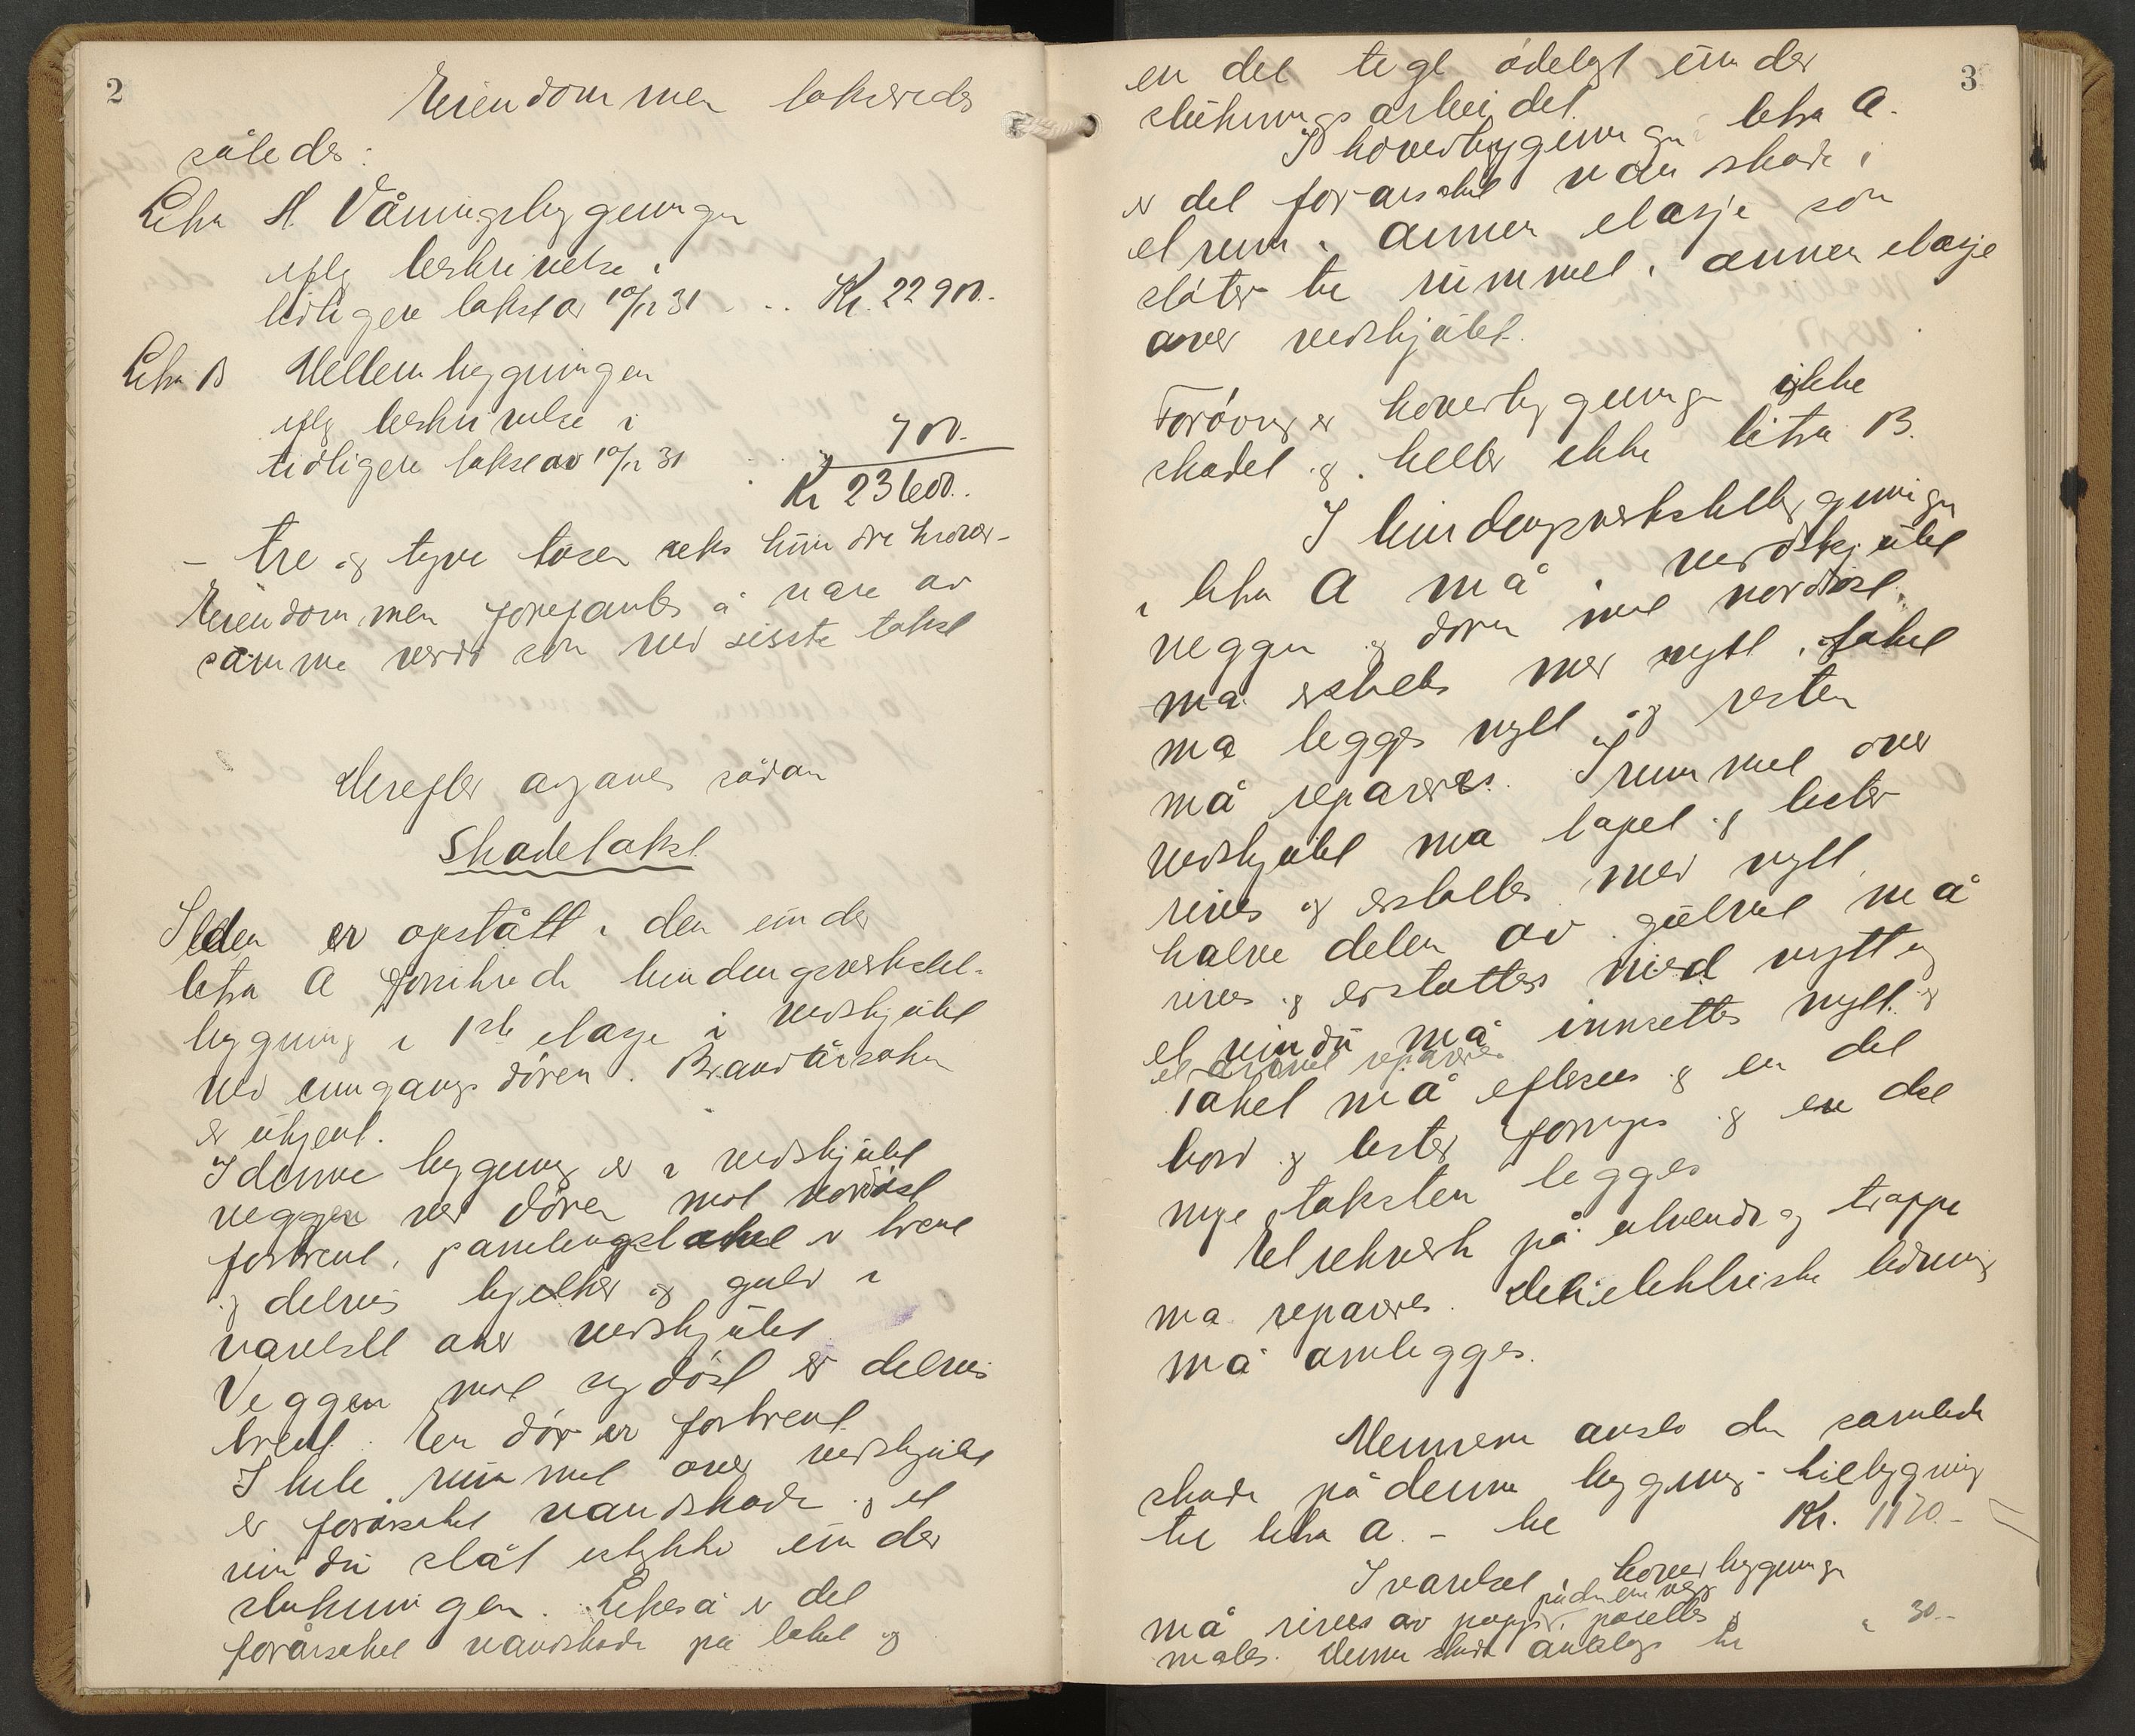 2
Eiendommen takseredes
således:
Litra A. Våningsbygningen
iflg beskrivelse i
tidligere takst av 10/12 31 - .. Kr. 22900.
Litra B Mellembygningen
iflg beskrivelse i
tidligere takst av 10/12 31 . . „ 700.
Kr 23600..
- tre og tyve tusen seks hundre kroner -
Eiendommen forefantes å være av
samme verdi som ved sisste takst
Derefter avgaves sådan
Skadetakst
Ilden er opstått i den under
litra A forsikrede
bygning i 1ste etasje i vedskjulet
ved inngangsdören. Brandårsaken
er ukjent.
I denne bygning er i vedskjulet
veggen ved dören mot nordöst
forbrent, er brent
og delvis bjelker og gulv i
værelset over vedskjulet
Veggen mot sydöst er delvis
brent. En dör er forbrent.
I hele rummet over vedskjulet
er forårsaket vandskade og et
vindu slåt istykke under
slukningen. Likeså er det
forårsaket vandskade på taket og
3
en del tegl ödelagt under
slukningsarbeidet.
I hovedbygningen litra A.
er det forårsaket vandskade i
et rum i annen etasje som
stöter til rummet i annen etasje
over vedskjulet.
Forövrig er hovedbygningen ikke
skadet og heller ikke litra B.
I
i litra A må i vedskjulet
veggen og dören mot nordöst
må erstattes med nytt, taket
må legges nytt og resten
må repareres. I rummet over
vedskjulet må tapet og lister
rives og erstattes med nytt,
halve delen av gulvet må
rives og erstattes med nytt og
et vindu må innsettes nytt og
et repareres
Taket må eftersees og en del
bord og lester fornyes og en del
nye taksten legges
Et rekverk på utvendig trappe
må repareres. Det elektriske ledning
må omlegges.
Mennene anslo den samlede
skade på denne bygning - tilbygning
til litra A. - til Kr. 1170.-
I værelset i hovedbygningen
på den ene vegg
må rives av papir, pastes og
males. Denne skade ansettes til „ 30.-